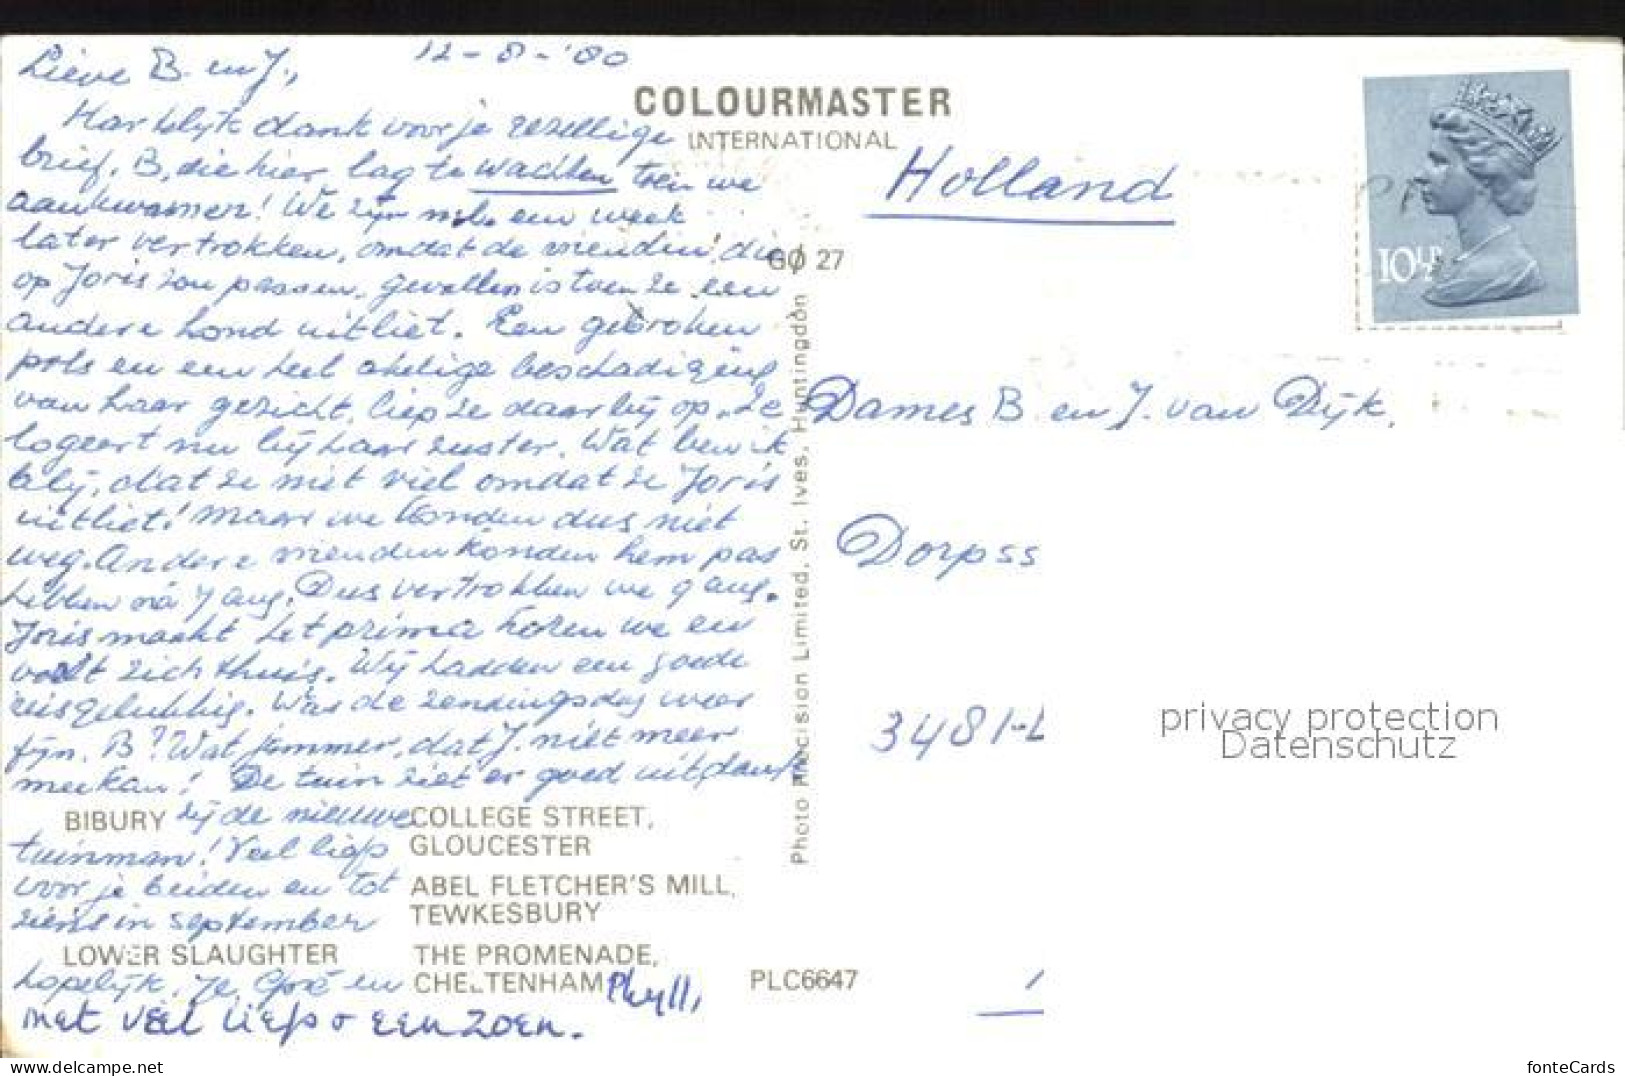 12-8-'80
Lieve B. en J.,
Hartelijk dank voor je gezellige
brief, B, die hier lag te wachten toen we
aankwamen! We zijn nl. een week
later vertrokken, omdat de vriendin, die
op Joris zou passen, gevallen is toen ze een
andere hond uitliet. Een gebroken
pols en een heel akelige beschadiging
van haar gezicht, liep ze daarbij op. Ze
logeert nu bij haar zuster. Wat ben ik
blij, dat ze niet viel omdat ze Joris
uitliet! Maar we konden dus niet
weg. Andere vrienden konden hem pas
hebben ná 7 aug. Dus vertrokken we 9 aug.
Joris maakt het prima horen we en
voelt zich thuis. Wij hadden een goede
reis gelukkig. Was de zendingsdag weer
fijn, B? Wat jammer, dat J. niet meer
mee kan! De tuin ziet er goed uit, dank
zij de nieuwe
tuinman! Veel liefs
voor je beiden en tot
ziens in september
hopelijk. Je Goré en
Phyll,
met véél liefs & een zoen.
COLOURMASTER
INTERNATIONAL
GØ 27
Photo Precision Limited, St. Ives, Huntingdon
BIBURY
COLLEGE STREET,
GLOUCESTER
ABEL FLETCHER'S MILL,
TEWKESBURY
LOWER SLAUGHTER
THE PROMENADE,
CHELTENHAM
PLC6647
Holland
10½P
Dames B. en J. van Dijk,
Dorpss
3481-L
privacy protection
Datenschutz
www.delcampe.net
fonteCards